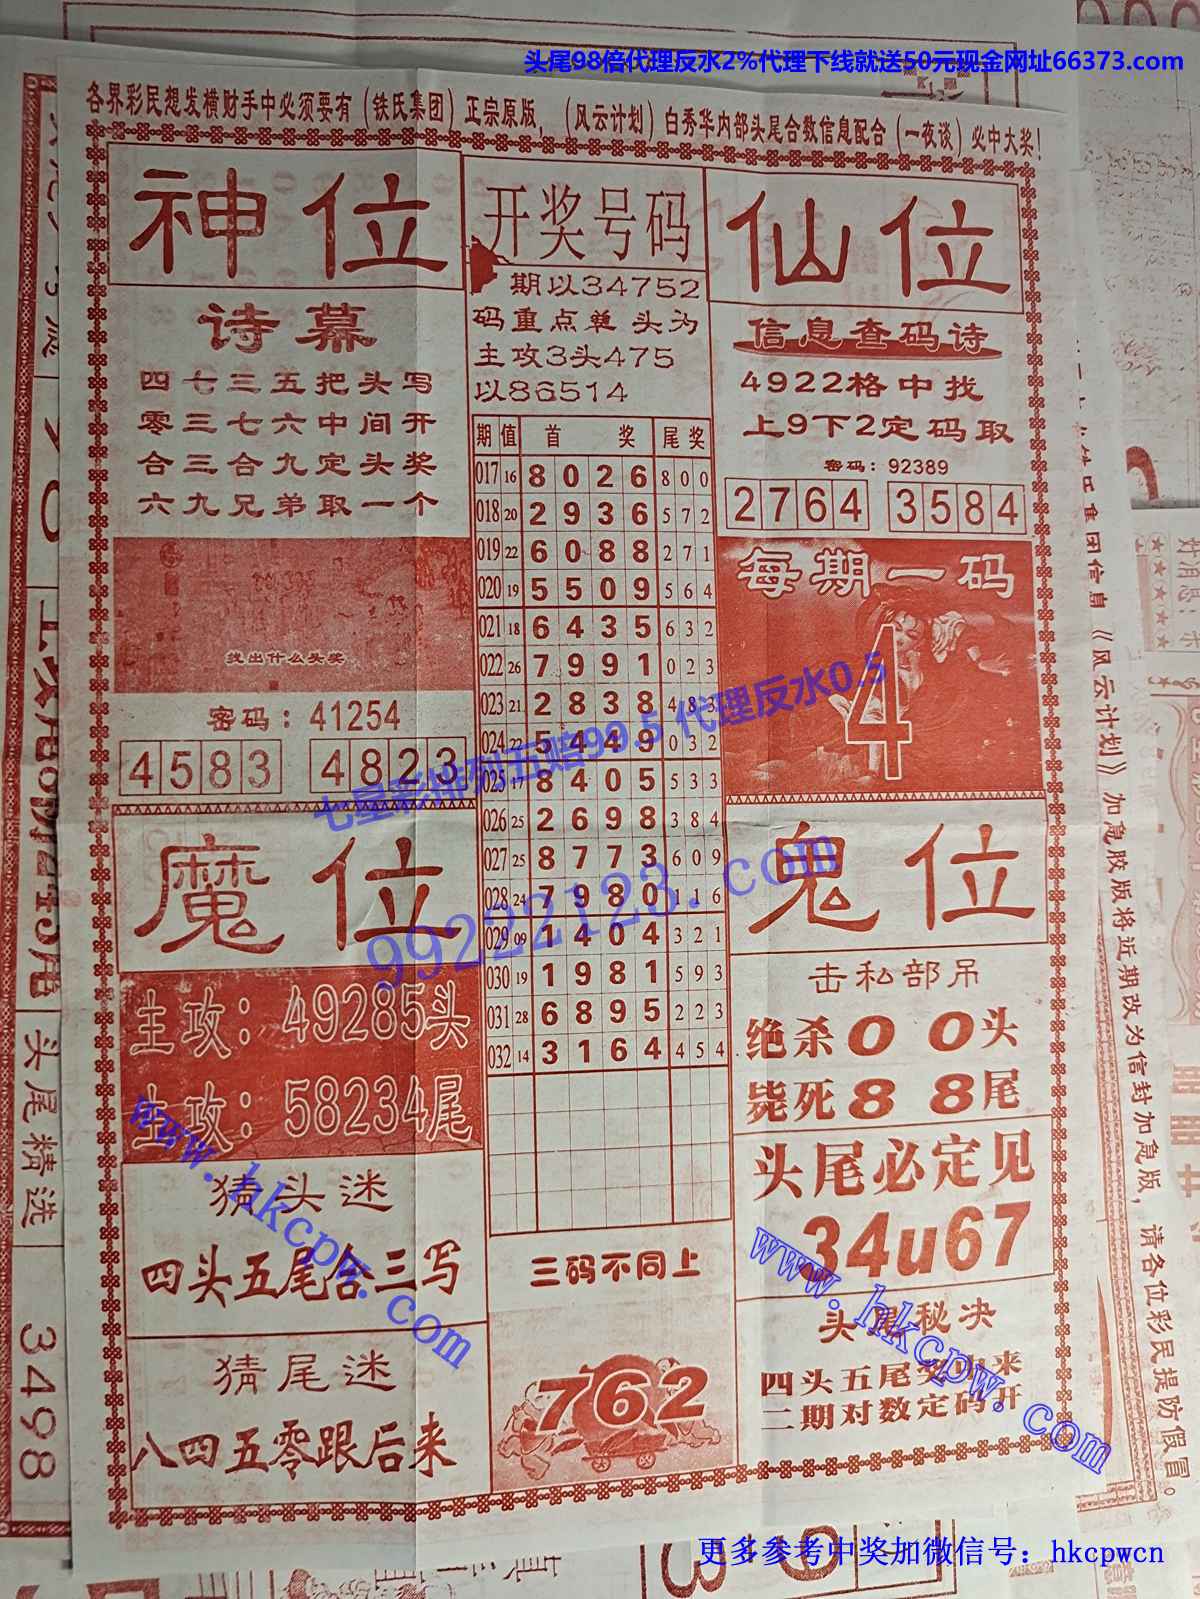 头尾98倍代理反水2%代理下线就送50元现金网址66373.com
各界彩民想发横财手中必须要有（铁氏集团）正宗原版，（风云计划）白秀华内部头尾合数信息配合（一夜谈）必中大奖！
神位
诗幕
四七三五把头写
零三七六中间开
合三合九定头奖
六九兄弟取一个
找出什么头奖
密码：41254
4583 4823
开奖号码
期以34752
码重点单头为
主攻3头475
以86514
期 值 首 奖 尾奖
017 16 8 0 2 6 8 0 0
018 20 2 9 3 6 5 7 2
019 22 6 0 8 8 2 7 1
020 19 5 5 0 9 5 6 4
021 18 6 4 3 5 6 3 2
022 26 7 9 9 1 0 2 3
023 21 2 8 3 8 4 8 3
024 22 5 4 4 9 0 3 2
025 17 8 4 0 5 5 3 3
026 25 2 6 9 8 3 8 4
027 25 8 7 7 3 6 0 9
028 24 7 9 8 0 1 1 6
029 09 1 4 0 4 3 2 1
030 19 1 9 8 1 5 9 3
031 28 6 8 9 5 2 2 3
032 14 3 1 6 4 4 5 4
三码不同上
762
仙位
信息查码诗
4922格中找
上9下2定码取
密码：92389
2764 3584
每期一码
4
魔位
主攻：49285头
主攻：58234尾
猜头迷
四头五尾合三写
猜尾迷
八四五零跟后来
鬼位
击私部吊
绝杀0 0头
毙死8 8尾
头尾必定见
34u67
头尾秘决
四头五尾奖由来
二期对数定码开
七星彩排列五赔99.5 代理反水0.5
99222123.com
www.hkcpw.com
www.hkcpw.com
《风云计划》加急胶版将近期改为信封加急版，请各位彩民提防假冒。
头尾精选
3498
好消息：
更多参考中奖加微信号：hkcpwcn